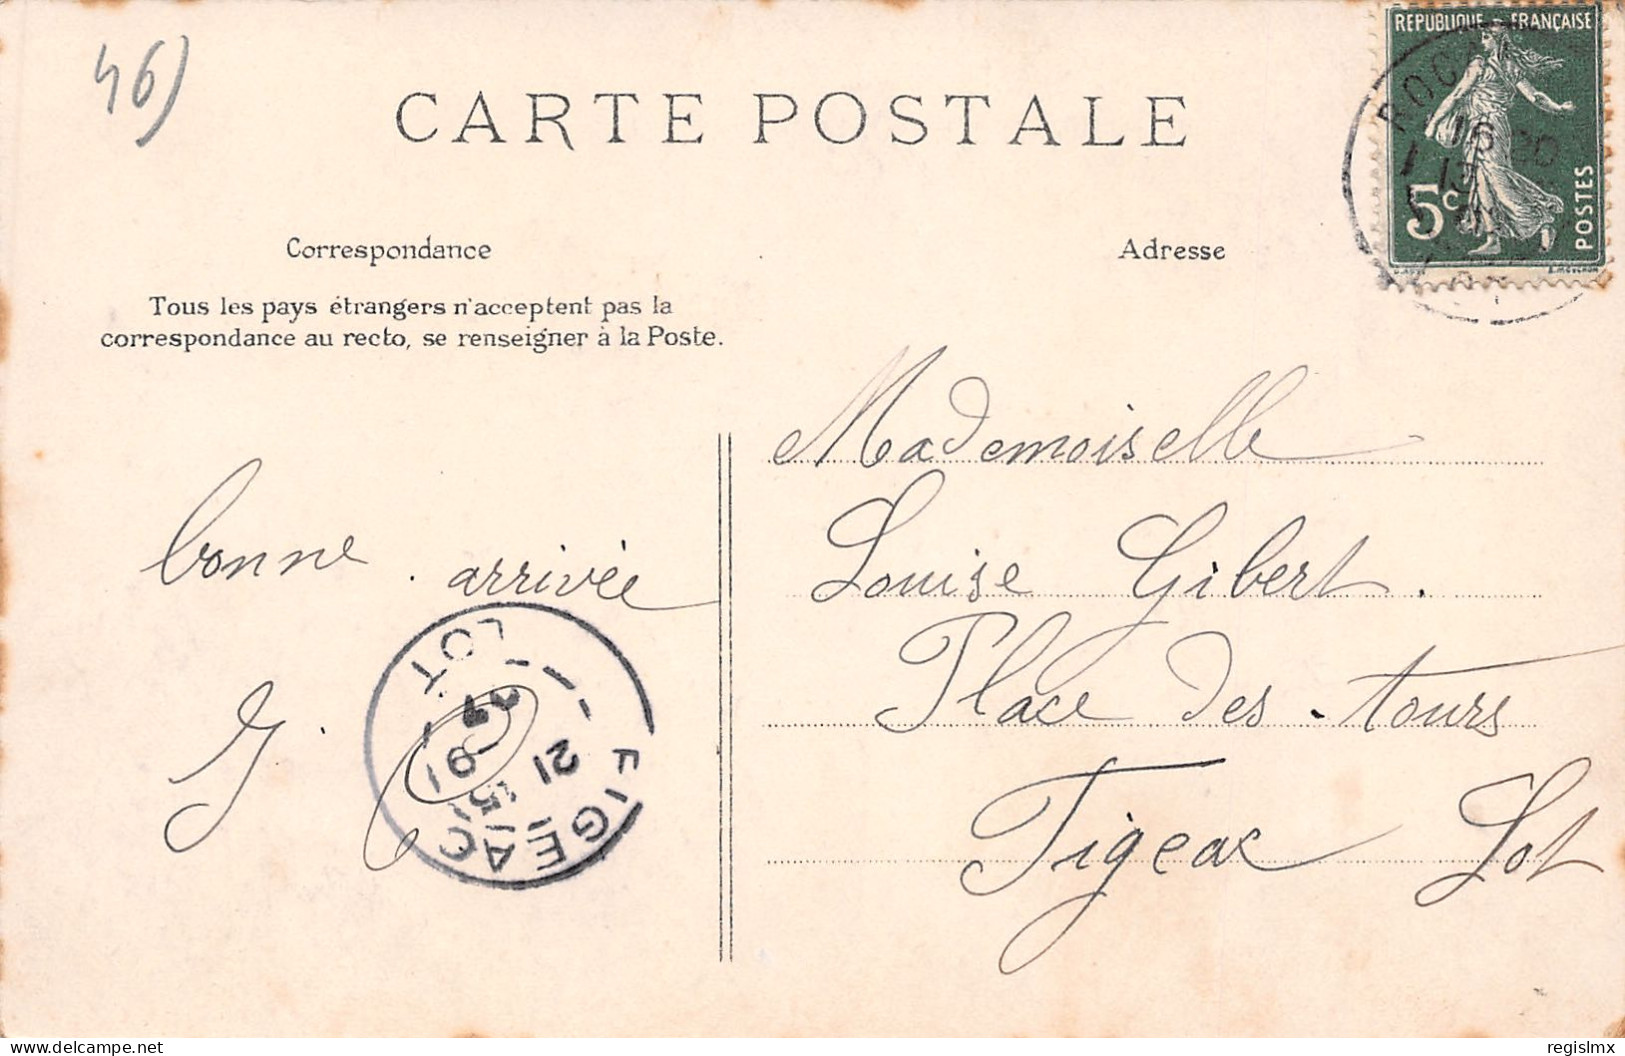 46)
CARTE POSTALE
REPUBLIQUE FRANÇAISE
5c
POSTES
E. MOUCHON
ROCAM
16 20
Correspondance
Adresse
Tous les pays étrangers n'acceptent pas la
correspondance au recto, se renseigner à la Poste.
bonne arrivée
G.
Mademoiselle
Louise Gibert.
Place des tours
Figeac Lot
FIGEAC
LOT
21 15
regislmx
delcampe.net